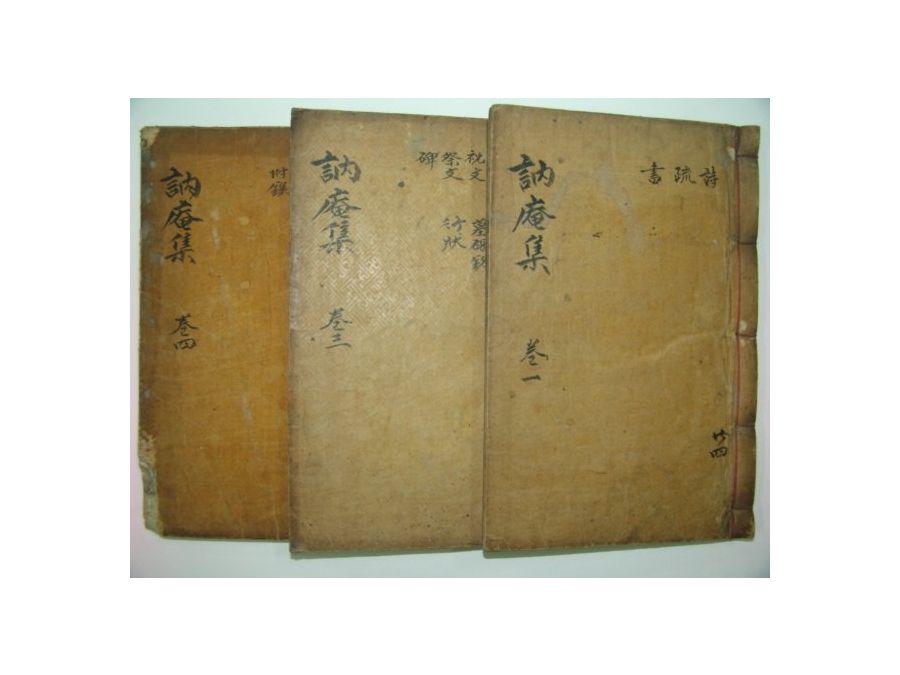 詩
疏
書
訥庵集
卷一
祝文
祭文
碑
行狀
訥庵集
卷三
附錄
訥庵集
卷四